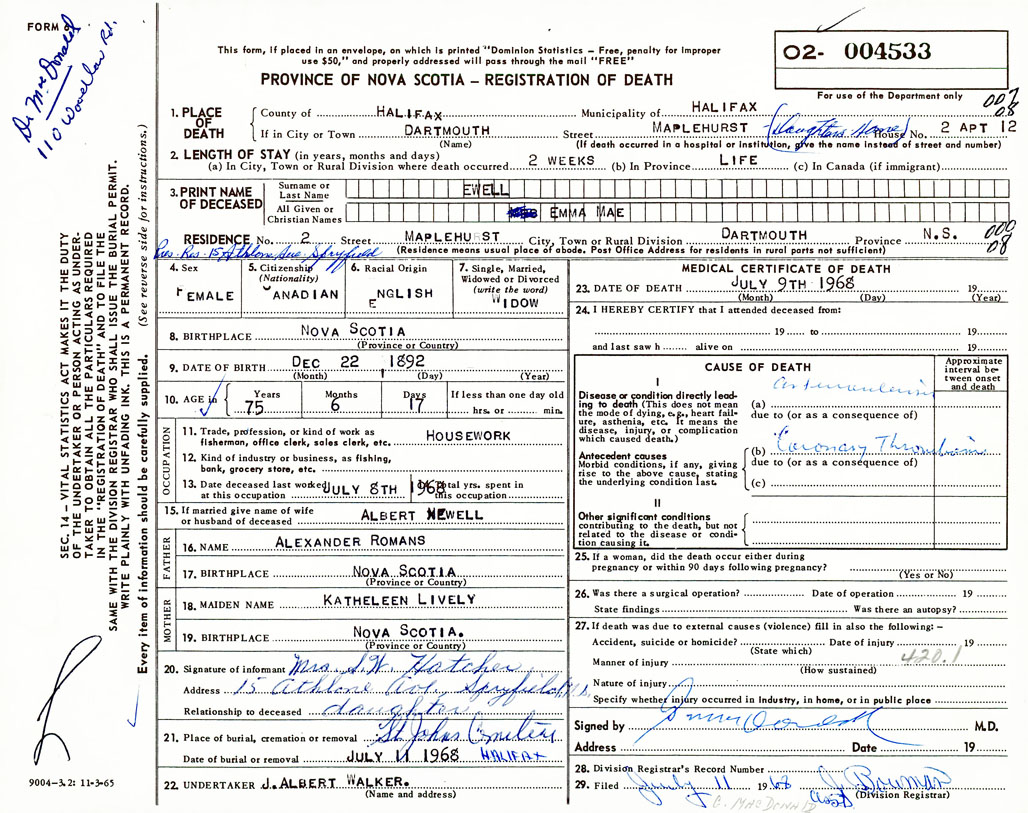 FORM 6
Dr MacDonald
110 Woodlaw Rd.
This form, if placed in an envelope, on which is printed "Dominion Statistics – Free, penalty for improper
use $50," and properly addressed will pass through the mail "FREE"
PROVINCE OF NOVA SCOTIA – REGISTRATION OF DEATH
02- 004533
For use of the Department only
007
08
1. PLACE OF DEATH
County of HALIFAX Municipality of HALIFAX
If in City or Town DARTMOUTH Street MAPLEHURST (Daughters Home) House No. 2 APT 12
(Name) (If death occurred in a hospital or institution, give the name instead of street and number)
2. LENGTH OF STAY (in years, months and days)
(a) In City, Town or Rural Division where death occurred 2 WEEKS (b) In Province LIFE (c) In Canada (if immigrant)
3. PRINT NAME OF DECEASED
Surname or Last Name EWELL
All Given or Christian Names EMMA MAE
RESIDENCE No. 2 Street MAPLEHURST City, Town or Rural Division DARTMOUTH Province N.S.
000
08
Res. 15 Athlone Ave Spryfield (Residence means usual place of abode. Post Office Address for residents in rural parts not sufficient)
4. Sex
FEMALE
5. Citizenship (Nationality)
CANADIAN
6. Racial Origin
ENGLISH
7. Single, Married, Widowed or Divorced (write the word)
WIDOW
8. BIRTHPLACE NOVA SCOTIA
(Province or Country)
9. DATE OF BIRTH DEC 22 1892
(Month) (Day) (Year)
10. AGE in Years 75 Months 6 Days 17 If less than one day old
hrs. or min.
OCCUPATION
11. Trade, profession, or kind of work as fisherman, office clerk, sales clerk, etc. HOUSEWORK
12. Kind of industry or business, as fishing, bank, grocery store, etc.
13. Date deceased last worked at this occupation JULY 8TH 1968
14. Total yrs. spent in this occupation
15. If married give name of wife or husband of deceased ALBERT NEWELL
FATHER
16. NAME ALEXANDER ROMANS
17. BIRTHPLACE NOVA SCOTIA
(Province or Country)
MOTHER
18. MAIDEN NAME KATHELEEN LIVELY
19. BIRTHPLACE NOVA SCOTIA.
(Province or Country)
20. Signature of informant Mrs. S.W. Hatcher
Address 15 Athlone Ave Spryfield N.S.
Relationship to deceased daughter
21. Place of burial, cremation or removal St Johns Cemetery
Date of burial or removal JULY 11 1968 HALIFAX
22. UNDERTAKER J. ALBERT WALKER.
(Name and address)
MEDICAL CERTIFICATE OF DEATH
23. DATE OF DEATH JULY 9TH 1968 19
(Month) (Day) (Year)
24. I HEREBY CERTIFY that I attended deceased from:
19 to 19
and last saw h alive on 19
CAUSE OF DEATH
Approximate interval between onset and death
I
Disease or condition directly leading to death (This does not mean the mode of dying, e.g., heart failure, asthenia, etc. It means the disease, injury, or complication which caused death.)
(a)
due to (or as a consequence of)
Antecedent causes
Morbid conditions, if any, giving rise to the above cause, stating the underlying condition last.
(b) Coronary Thrombosis
due to (or as a consequence of)
(c)
II
Other significant conditions
contributing to the death, but not related to the disease or condition causing it.
25. If a woman, did the death occur either during
pregnancy or within 90 days following pregnancy?
(Yes or No)
26. Was there a surgical operation? Date of operation 19
State findings Was there an autopsy?
27. If death was due to external causes (violence) fill in also the following: –
Accident, suicide or homicide? Date of injury 19
(State which)
420.1
Manner of injury
(How sustained)
Nature of injury
Specify whether injury occurred in Industry, in home, or in public place
Signed by M.D.
Address Date 19
28. Division Registrar's Record Number
29. Filed July 11 1968 Bowman
(Division Registrar)
G. MacDonald
SEC. 14 – VITAL STATISTICS ACT MAKES IT THE DUTY
OF THE UNDERTAKER OR PERSON ACTING AS UNDER-
TAKER TO OBTAIN ALL THE PARTICULARS REQUIRED
IN THE "REGISTRATION OF DEATH" AND TO FILE THE
SAME WITH THE DIVISION REGISTRAR WHO SHALL ISSUE THE BURIAL PERMIT.
WRITE PLAINLY WITH UNFADING INK. THIS IS A PERMANENT RECORD.
Every item of information should be carefully supplied. (See reverse side for instructions.)
9004-3.2: 11-3-65